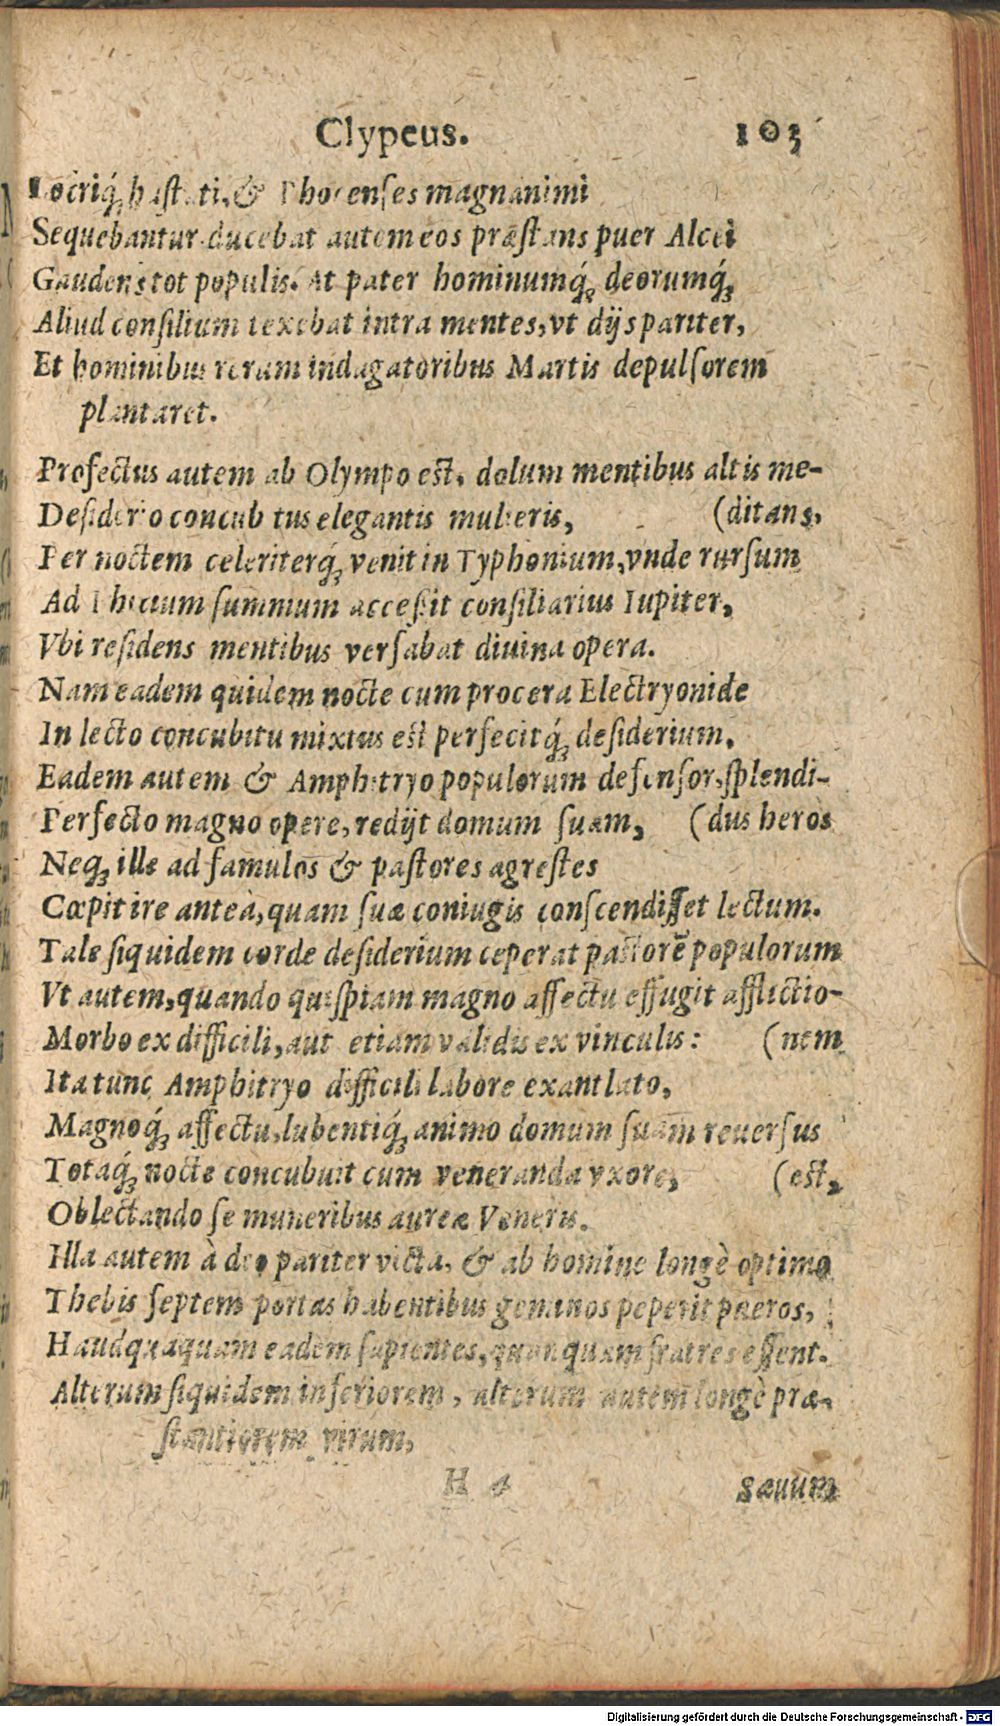 Clypeus. 103
Locriq́; hastati, & Phocenses magnanimi
Sequebantur. ducebat autem eos præstans puer Alcei
Gaudens tot populis. At pater hominumq́; deorumq́;
Aliud consilium texebat intra mentes, vt dijs pariter,
Et hominibus rerum indagatoribus Martis depulsorem
plantaret.
Profectus autem ab Olympo est, dolum mentibus altis me-
Desiderio concubitus elegantis mulieris, (ditans,
Per noctem celeriterq́; venit in Typhonium, vnde rursum
Ad Phicium summum accessit consiliarius Iupiter,
Vbi residens mentibus versabat diuina opera.
Nam eadem quidem nocte cum procera Electryonide
In lecto concubitu mixtus est perfecitq́; desiderium.
Eadem autem & Amphitryo populorum defensor, splendi-
Perfecto magno opere, redijt domum suam, (dus heros
Neq; ille ad famulos & pastores agrestes
Cœpit ire anteà, quam suæ coniugis conscendisset lectum.
Tale siquidem corde desiderium ceperat pastorē populorum
Vt autem, quando quispiam magno affectu effugit afflictio-
Morbo ex difficili, aut etiam validis ex vinculis: (nem
Ita tunc Amphitryo difficili labore exantlato,
Magnoq́; affectu, lubentiq́; animo domum suam reuersus
Totaq́; nocte concubuit cum veneranda vxore, (est,
Oblectando se muneribus aureæ Veneris.
Illa autem à deo pariter victa, & ab homine longè optimo
Thebis septem portas habentibus geminos peperit pueros,
Haudquaquam eadem sapientes, quanquam fratres essent.
Alterum siquidem inferiorem, alterum autem longè præ-
stantiorem virum,
H 4 sæuum
Digitalisierung gefördert durch die Deutsche Forschungsgemeinschaft - DFG